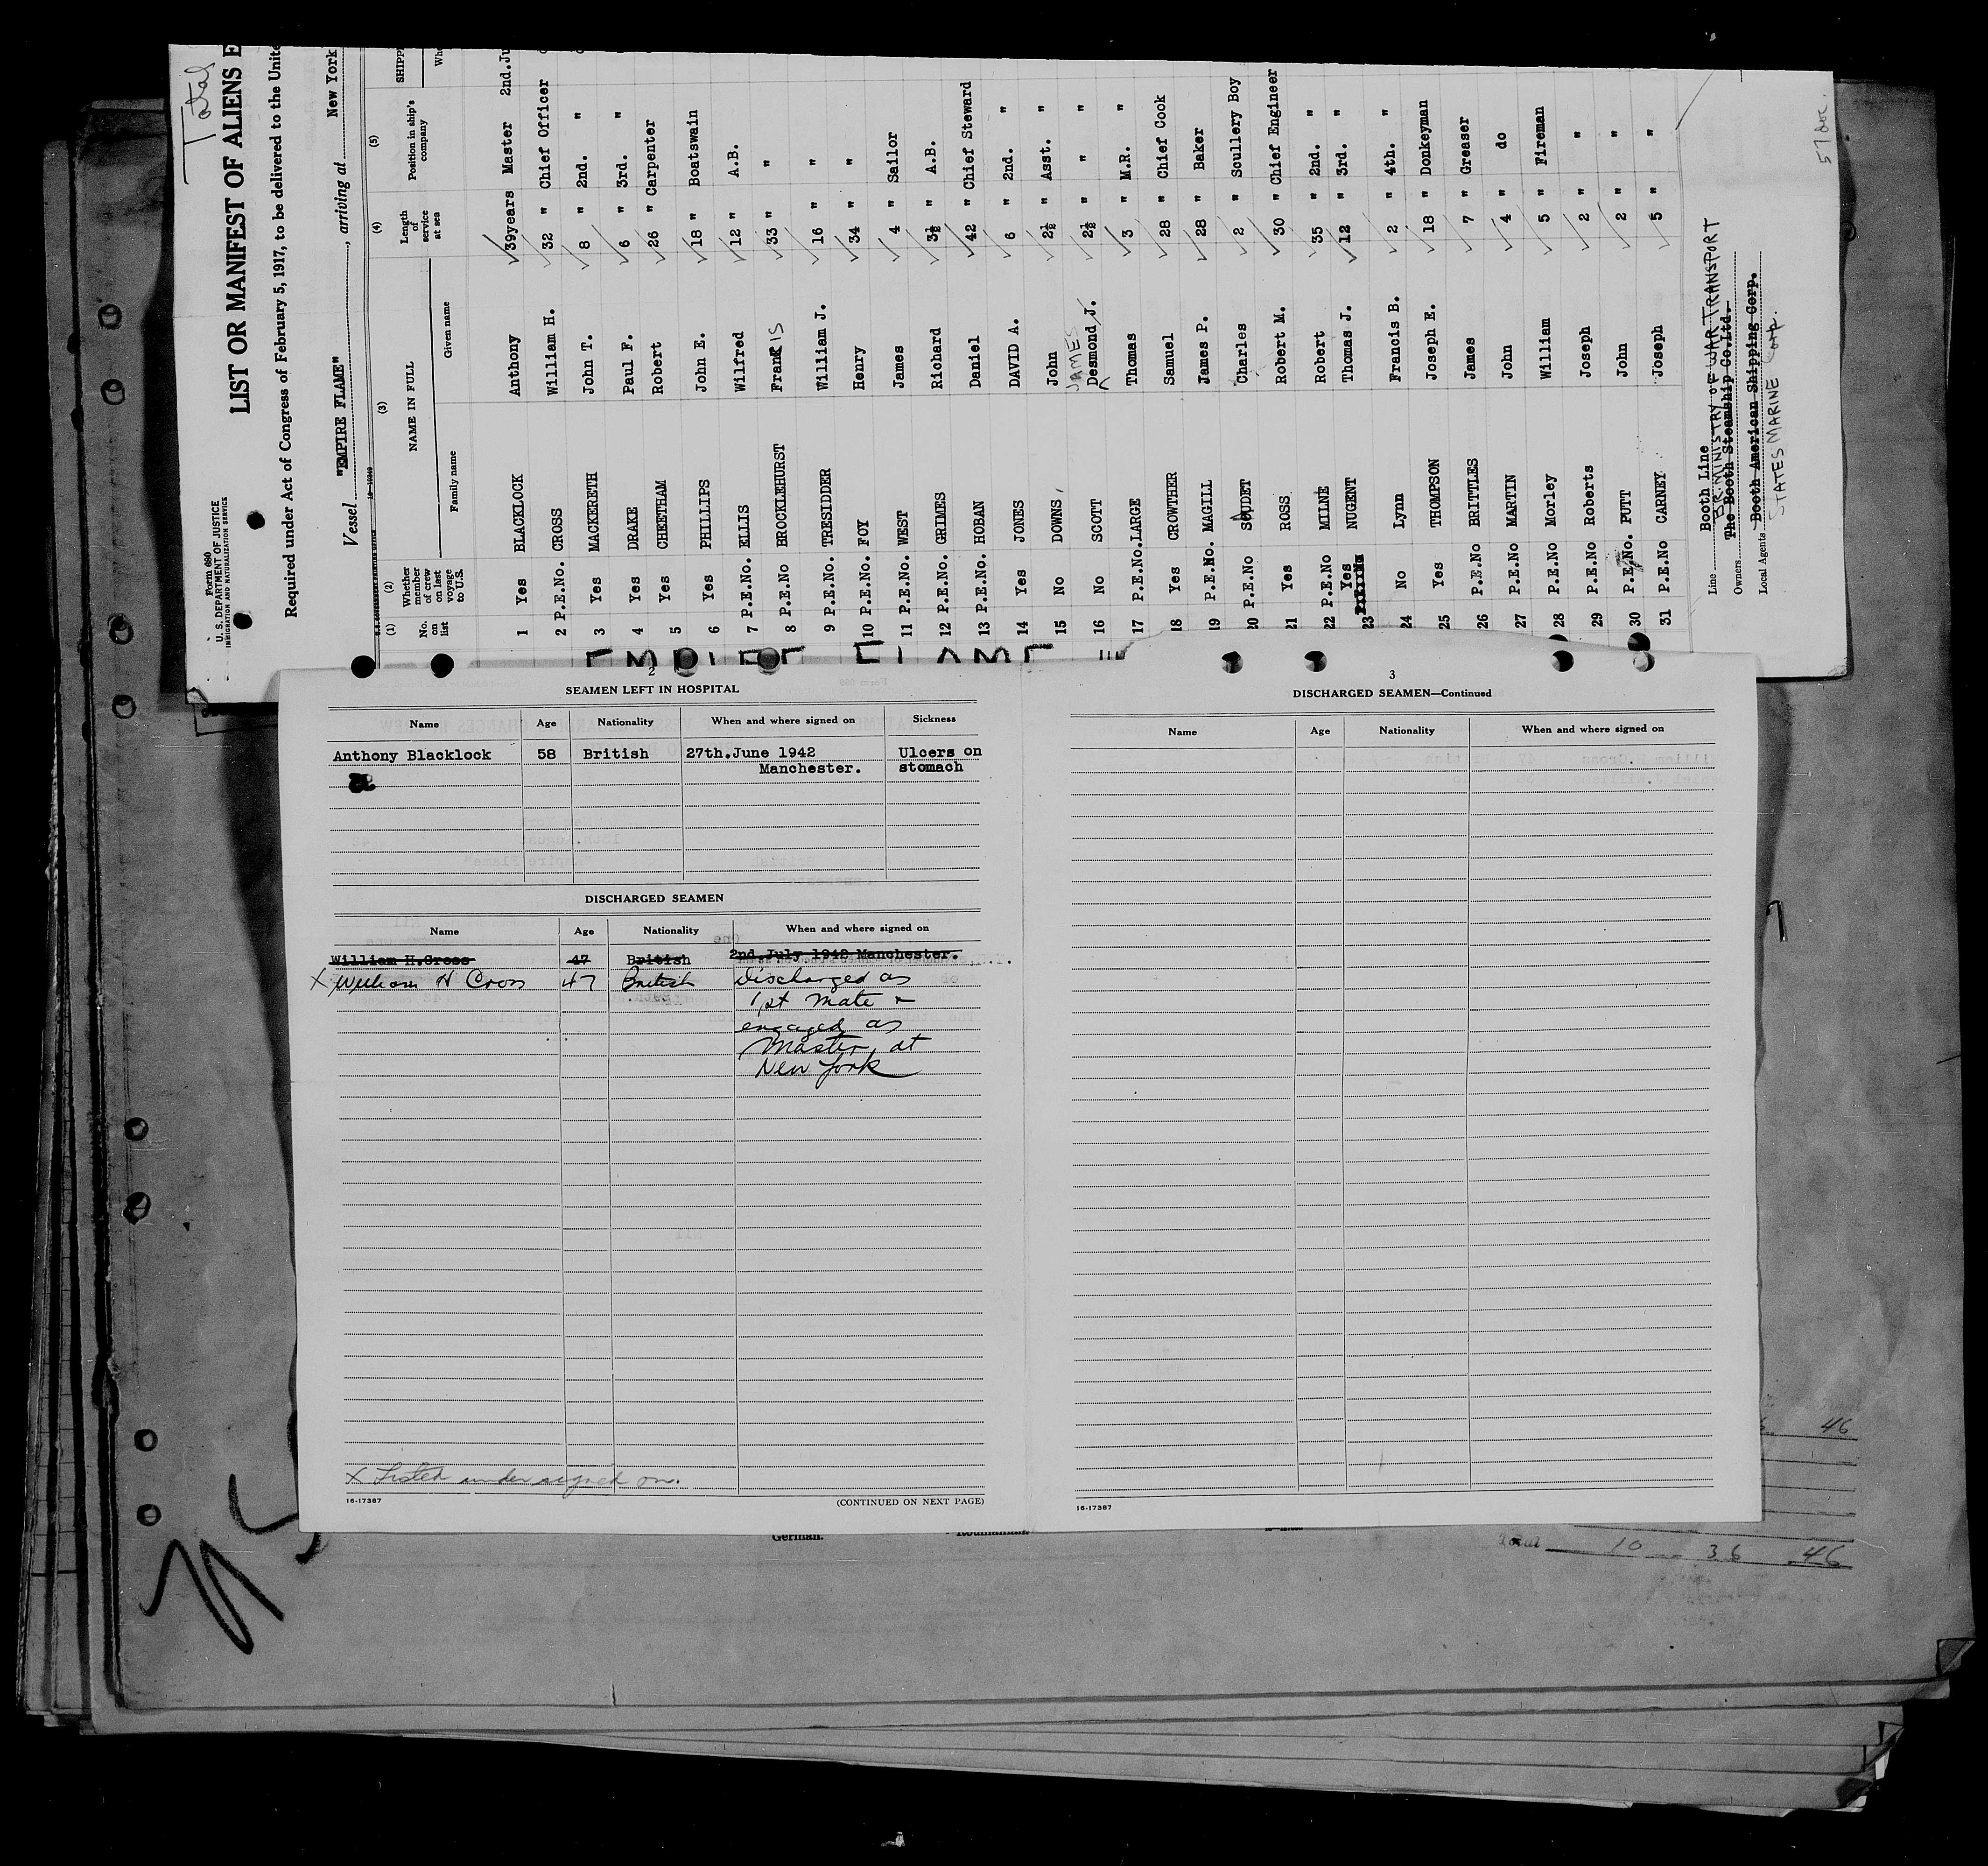 Total
Form 680
U. S. DEPARTMENT OF JUSTICE
IMMIGRATION AND NATURALIZATION SERVICE
LIST OR MANIFEST OF ALIENS E
Required under Act of Congress of February 5, 1917, to be delivered to the Unite
Vessel "EMPIRE FLAME", arriving at New York
(1) (2) (3) (4) (5)
No. on list Whether member of crew on last voyage to U.S. NAME IN FULL Length of service at sea Position in ship's company SHIPP
Family name Given name Whe
1 Yes BLACKLOCK Anthony 39years Master 2nd.Ju
2 P.E.No. CROSS William H. 32 " Chief Officer
3 Yes MACKERETH John T. 8 " 2nd. "
4 Yes DRAKE Paul F. 6 " 3rd. "
5 Yes CHEETHAM Robert 26 " Carpenter
6 Yes PHILLIPS John E. 18 " Boatswain
7 P.E.No. ELLIS Wilfred 12 " A.B.
8 P.E.No BROCKLEHURST Francis 33 " "
9 P.E.No. TRESIDDER William J. 16 " "
10 P.E.No. FOY Henry 34 " "
11 P.E.No. WEST James 4 " Sailor
12 P.E.No. GRIMES Richard 3½ " A.B.
13 P.E.No. HOBAN Daniel 42 " Chief Steward
14 Yes JONES DAVID A. 6 " 2nd. "
15 No DOWNS John 2½ " Asst. "
16 No SCOTT JAMES Desmond J. 2½ " " "
17 P.E.No. LARGE Thomas 3 " M.R. "
18 Yes CROWTHER Samuel 28 " Chief Cook
19 P.E.No. MAGILL James P. 28 " Baker
20 P.E.No SAUDET Charles 2 " Scullery Boy
21 Yes ROSS Robert M. 30 " Chief Engineer
22 P.E.No MILNE Robert 35 " 2nd. "
23 Yes NUGENT Thomas J. 12 " 3rd. "
24 No Lynn Francis B. 2 " 4th. "
25 Yes THOMPSON Joseph E. 18 " Donkeyman
26 P.E.No BRITTLES James 7 " Greaser
27 P.E.No MARTIN John 4 " do
28 P.E.No Morley William 5 " Fireman
29 P.E.No Roberts Joseph 2 " "
30 P.E.No. PUTT John 2 " "
31 P.E.No CARNEY Joseph 5 " "
Line Booth Line
BR MINISTRY OF WAR TRANSPORT
Owners The Booth Steamship Co.Ltd.
Local Agents Booth American Shipping Corp.
STATES MARINE Corp.
EMPIRE FLAME
2
SEAMEN LEFT IN HOSPITAL
Name Age Nationality When and where signed on Sickness
Anthony Blacklock 58 British 27th.June 1942 Ulcers on
Manchester. stomach
DISCHARGED SEAMEN
Name Age Nationality When and where signed on
William H.Cross 47 British 2nd.July 1942 Manchester.
X William H Cross 47 British Discharged as
1st Mate &
engaged as
Master, at
New York
X Listed under signed on.
16-17387 (CONTINUED ON NEXT PAGE)
3
DISCHARGED SEAMEN—Continued
Name Age Nationality When and where signed on
16-17387
German. Roumanian.
46
Total 10 36 46